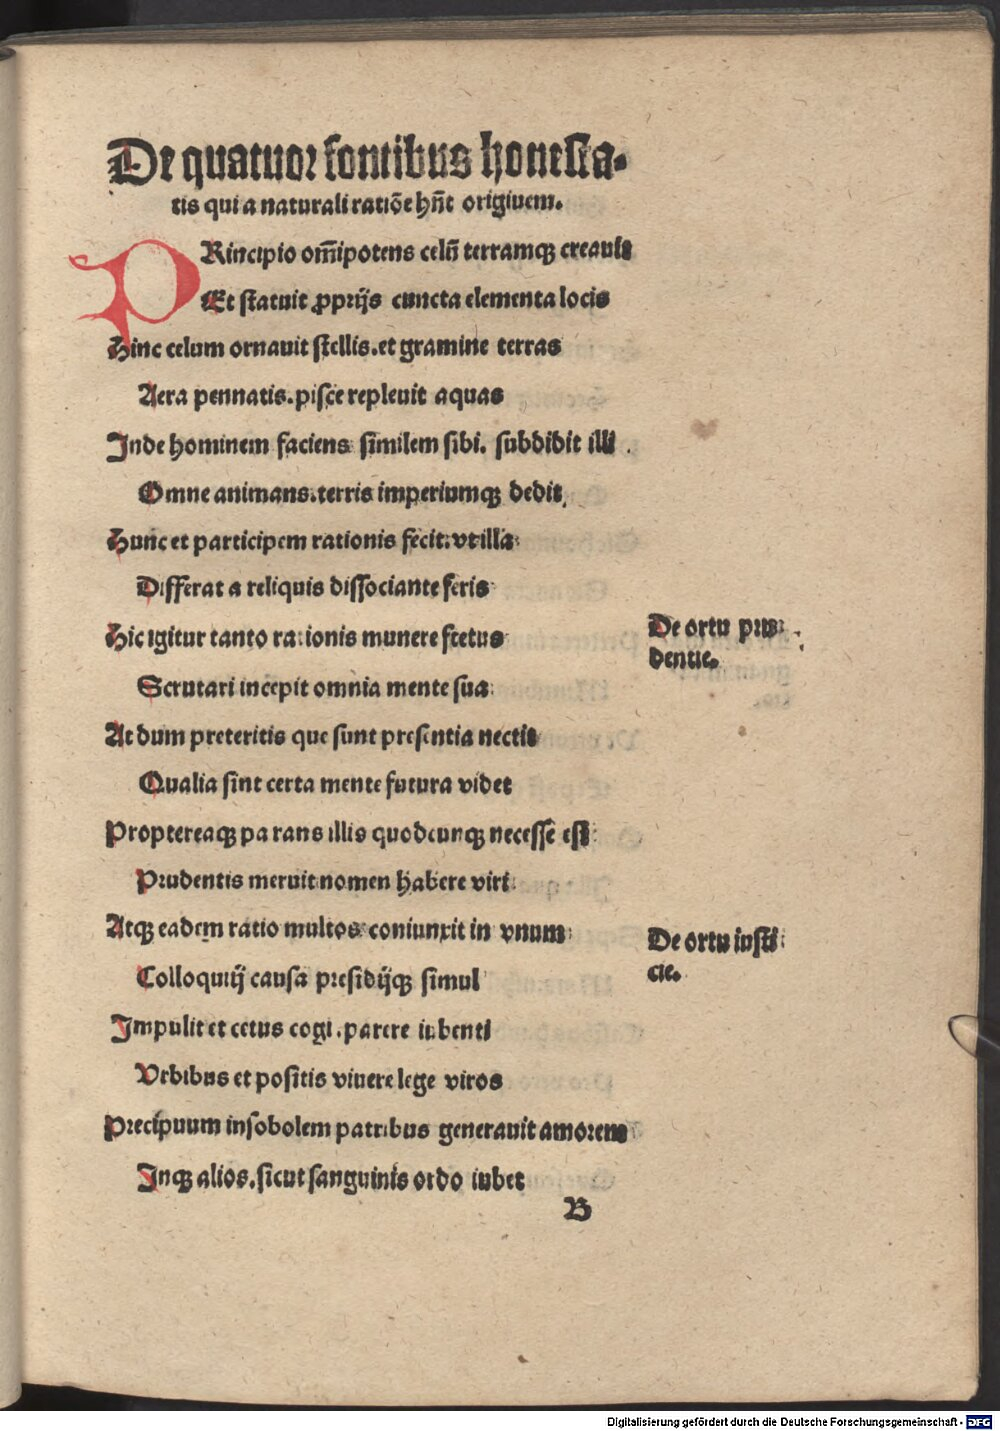 De quatuor fontibus honesta-
tis qui a naturali ratiōe hn̄t originem.
PRincipio om̄ipotens celū terramqꝫ creauit
Et statuit ꝓprijs cuncta elementa locis
Hinc celum ornauit stellis. et gramine terras
Aera pennatis. pisce repleuit aquas
Inde hominem faciens similem sibi. subdidit illi
Omne animans. terris imperiumqꝫ dedit
Hunc et participem rationis fecit: vt illa
Differat a reliquis dissociante feris
Hic igitur tanto rationis munere fretus
De ortu pru-
dentie.
Scrutari incepit omnia mente sua
At dum preteritis que sunt presentia nectit
Qualia sint certa mente futura videt
Propterea qꝫ parans illis quodcunqꝫ necesse est
Prudentis meruit nomen habere viri
Atqꝫ eadem ratio multos coniunxit in vnum
De ortu iusti
cie.
Colloquij causa presidijqꝫ simul
Impulit et cetus cogi. parere iubenti
Vrbibus et positis viuere lege viros
Precipuum insobolem patribus generauit amorem
Inqꝫ alios. sicut sanguinis ordo iubet
B
Digitalisierung gefördert durch die Deutsche Forschungsgemeinschaft - DFG